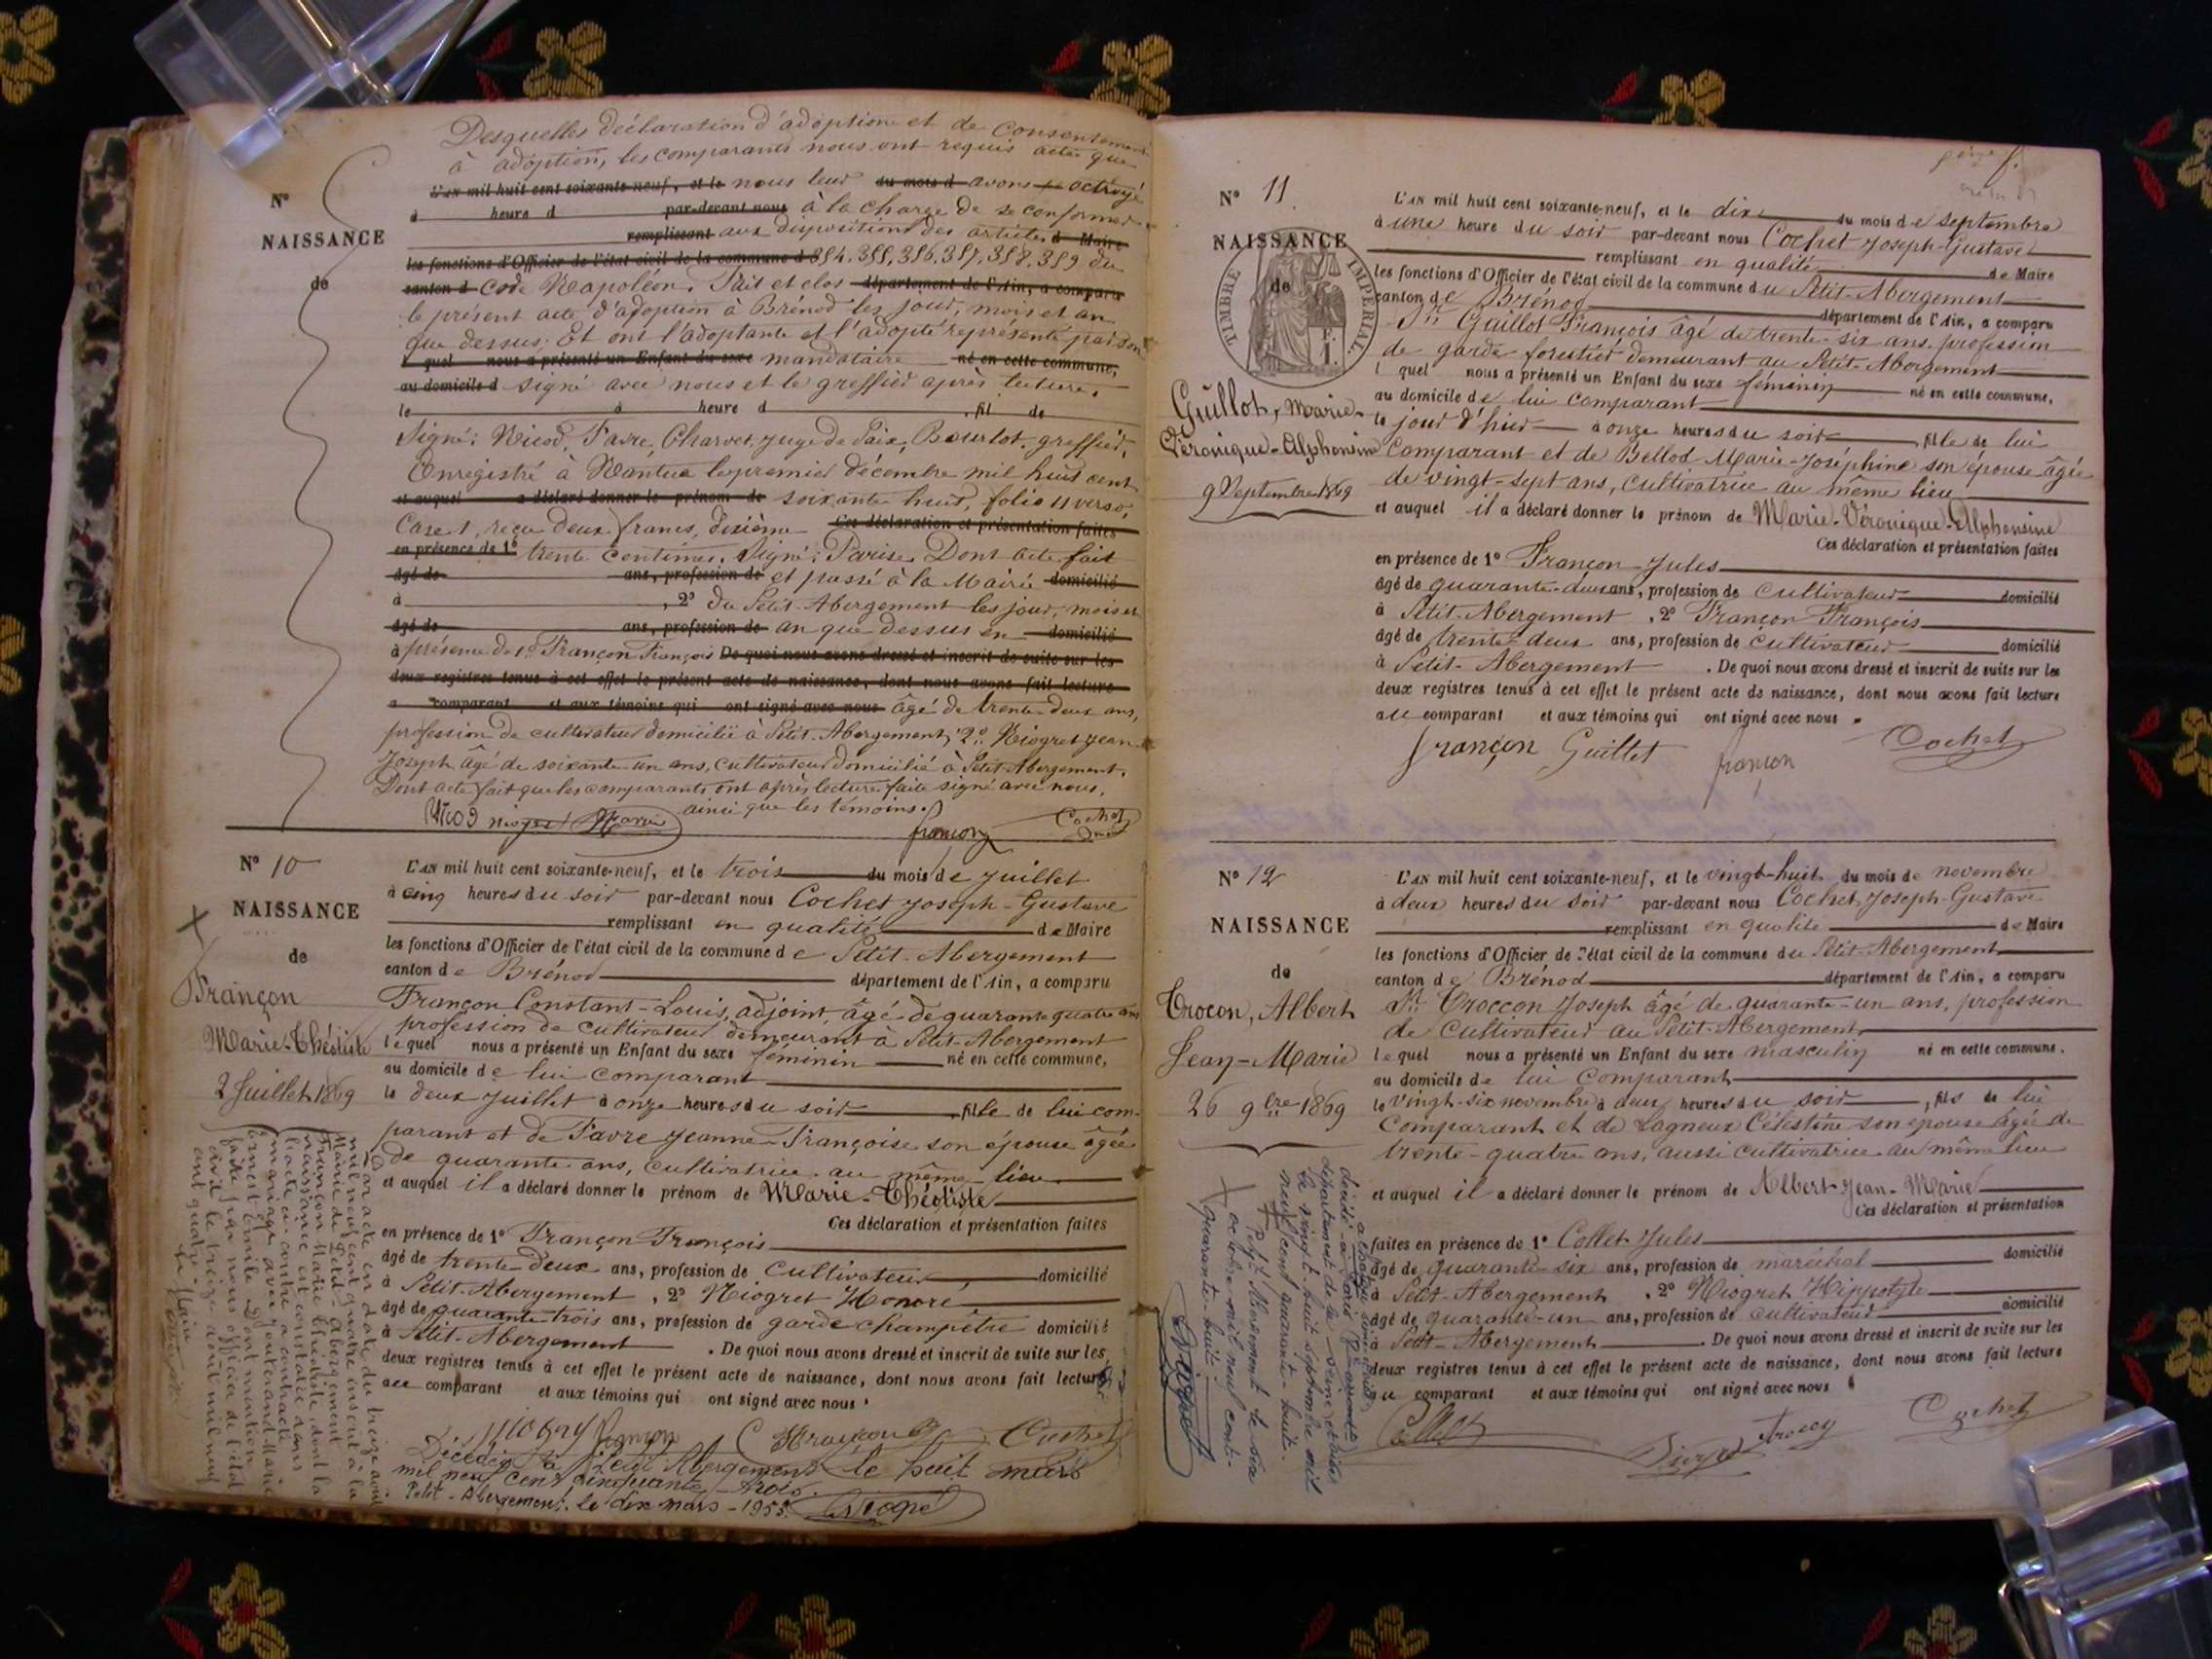 Desquelles déclaration d'adoption et de consentement
à adoption, les comparants nous ont requis acte que
L'AN mil huit cent soixante-neuf, et le nous leur du mois d avons octroyé
à heure d par-devant nous à la charge de se conformer
remplissant aux dispositions des articles d Maire
les fonctions d'Officier de l'état civil de la commune d 354, 355, 356, 357, 358, 359 du
canton d Code Napoléon. Fait et clos département de l'Ain, a comparu
le présent acte d'adoption à Brénod les jour, mois et an
que dessus. Et ont l'adoptante et l'adopté représenté par son
l quel nous a présenté un Enfant du sexe mandataire né en cette commune,
au domicile d signé avec nous et le greffier après lecture.
le à heure d , fil de
Signé: Nicod, Favre, Charvet, juge de Paix, Bourlot, greffier,
Enregistré à Nantua le premier décembre mil huit cent
et auquel a déclaré donner le prénom de soixante huit, folio 11 verso,
Case 1, reçu deux francs, dixième Ces déclaration et présentation faites
en présence de 1° trente centimes. Signé: Parise. Dont acte fait
âgé de ans, profession de et passé à la Mairie domicilié
à , 2° du Petit-Abergement les jour, mois et
âgé de ans, profession de an que dessus en domicilié
à présence de 1° Françon François De quoi nous avons dressé et inscrit de suite sur les
deux registres tenus à cet effet le présent acte de naissance, dont nous avons fait lecture
a comparant et aux témoins qui ont signé avec nous âgé de trente-deux ans,
profession de cultivateur domicilié à Petit-Abergement, 2° Niogret Jean-
Joseph âgé de soixante-un ans, cultivateur domicilié à Petit-Abergement.
Dont acte fait que les comparants ont après lecture faite signé avec nous,
ainsi que les témoins.
Nicod niogret françon Cochet
N°
NAISSANCE
de
N° 10
NAISSANCE
de
Françon
Marie-Théotiste
2 Juillet 1869
L'AN mil huit cent soixante-neuf, et le trois du mois de juillet
à cinq heures du soir par-devant nous Cochet Joseph-Gustave
remplissant en qualité de Maire
les fonctions d'Officier de l'état civil de la commune de Petit-Abergement
canton de Brénod département de l'Ain, a comparu
Françon Constant-Louis, adjoint, âgé de quarante quatre ans
profession de cultivateur demeurant à Petit-Abergement
lequel nous a présenté un Enfant du sexe féminin né en cette commune,
au domicile de lui comparant
le deux juillet à onze heures du soir, fille de lui com-
parant et de Favre Jeanne-Françoise son épouse âgée
de quarante ans, cultivatrice au même lieu
et auquel il a déclaré donner le prénom de Marie-Théotiste
Ces déclaration et présentation faites
en présence de 1° Françon François
âgé de trente-deux ans, profession de cultivateur, domicilié
à Petit-Abergement , 2° Niogret Honoré
âgé de quarante trois ans, profession de garde champêtre domicilié
à Petit-Abergement . De quoi nous avons dressé et inscrit de suite sur les
deux registres tenus à cet effet le présent acte de naissance, dont nous avons fait lecture
au comparant et aux témoins qui ont signé avec nous.
françon Cochet
Décédée à Petit Abergement le huit mars
mil neuf cent cinquante-trois.
Petit-Abergement. le dix mars-1953.
Par acte en date du treize août
mil neuf cent quatre inscrit à la
Mairie de Petit-Abergement
Françon Marie Théotiste, dont la
naissance est constatée dans
l'acte ci-contre a contracté
mariage avec
Ernest Emile Dont mention
faite par nous officier de l'état
civil le treize août mil neuf
cent quatre.
Le Maire
N° 11
NAISSANCE
de
TIMBRE IMPERIAL
Guillot, Marie-
Véronique-Alphonsine
9 Septembre 1869
L'AN mil huit cent soixante-neuf, et le dix du mois de septembre
à une heure du soir par-devant nous Cochet Joseph-Gustave
remplissant en qualité de Maire
les fonctions d'Officier de l'état civil de la commune du Petit-Abergement
canton de Brénod département de l'Ain, a comparu
Sr Guillot François âgé de trente-six ans, profession
de garde forestier demeurant au Petit-Abergement
l quel nous a présenté un Enfant du sexe féminin né en cette commune,
au domicile de lui comparant
le jour d'hier à onze heures du soir, fille de lui
comparant et de Bellod Marie-Joséphine son épouse âgée
de vingt-sept ans, cultivatrice au même lieu
et auquel il a déclaré donner le prénom de Marie-Véronique-Alphonsine
Ces déclaration et présentation faites
en présence de 1° Françon Jules
âgé de quarante-deux ans, profession de cultivateur domicilié
à Petit-Abergement , 2° Françon François
âgé de trente-deux ans, profession de cultivateur domicilié
à Petit-Abergement . De quoi nous avons dressé et inscrit de suite sur les
deux registres tenus à cet effet le présent acte de naissance, dont nous avons fait lecture
au comparant et aux témoins qui ont signé avec nous.
françon Guillot françon Cochet
N° 12
NAISSANCE
de
Trocon, Albert
Jean-Marie
26 9bre 1869
L'AN mil huit cent soixante-neuf, et le vingt-huit du mois de novembre
à deux heures du soir par-devant nous Cochet Joseph-Gustave
remplissant en qualité de Maire
les fonctions d'Officier de l'état civil de la commune du Petit-Abergement
canton de Brénod département de l'Ain, a comparu
Sr Troccon Joseph âgé de quarante-un ans, profession
de cultivateur au Petit-Abergement
lequel nous a présenté un Enfant du sexe masculin né en cette commune.
au domicile de lui comparant
le vingt-six novembre à deux heures du soir, fils de lui
comparant et de Lagneux Célestine son épouse âgée de
trente-quatre ans, aussi cultivatrice au même lieu
et auquel il a déclaré donner le prénom de Albert-Jean-Marie
Ces déclaration et présentation
faites en présence de 1° Collet Jules
âgé de quarante-six ans, profession de maréchal domicilié
à Petit-Abergement , 2° Niogret Hippolyte
âgé de quarante-un ans, profession de cultivateur domicilié
à Petit-Abergement . De quoi nous avons dressé et inscrit de suite sur les
deux registres tenus à cet effet le présent acte de naissance, dont nous avons fait lecture
au comparant et aux témoins qui ont signé avec nous
Collet Trocon Cochet
décédé à Paris
département de la Seine
le vingt-huit septembre mil
neuf cent quarante-huit.
Petit Abergement le six
octobre mil neuf cent
quarante-huit.